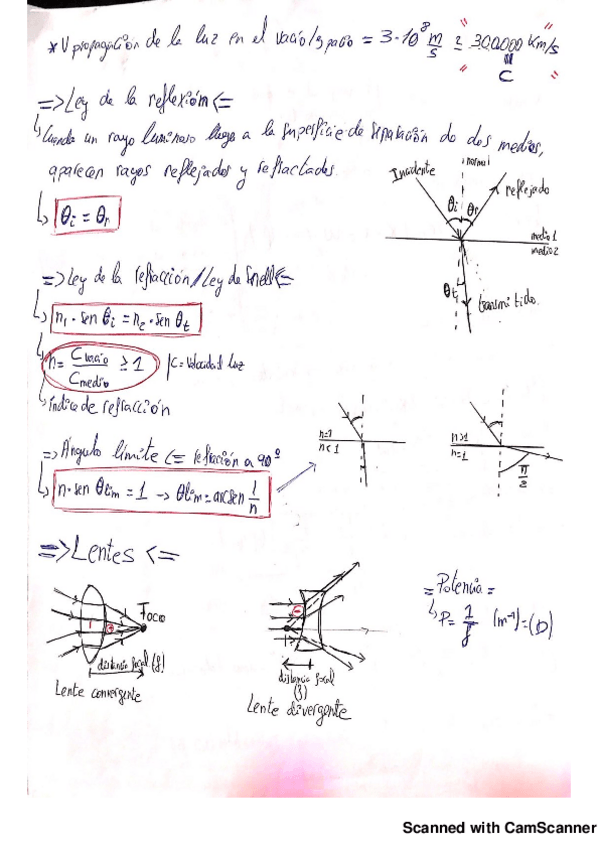 * V propagación de la luz en el vacío/spacio = 3·10⁸ m/s ≃ 300.000 Km/s
C
=> Ley de la reflexión <=
↳ Cuando un rayo luminoso llega a la superficie de separación de dos medios,
aparecen rayos reflejados y refractados.
↳ θi = θr
Incidente
normal
reflejado
θi θr
medio 1
medio 2
θt
transmitido
=> Ley de la refracción/Ley de Snell <=
↳ n₁ · sen θi = n₂ · sen θt
↳ n = Cvacío / Cmedio ≥ 1 | C = Velocidad luz
↳ Índice de refracción
=> Ángulo límite <= refracción a 90º
↳ n · sen θlim = 1 → θlim = arcsen 1/n
n=1
n<1
n>1
n=1
π/2
=> Lentes <=
Foco
distancia focal (f)
Lente convergente
distancia focal
(f)
Lente divergente
= Potencia =
↳ P = 1/f (m⁻¹) = (D)
Scanned with CamScanner